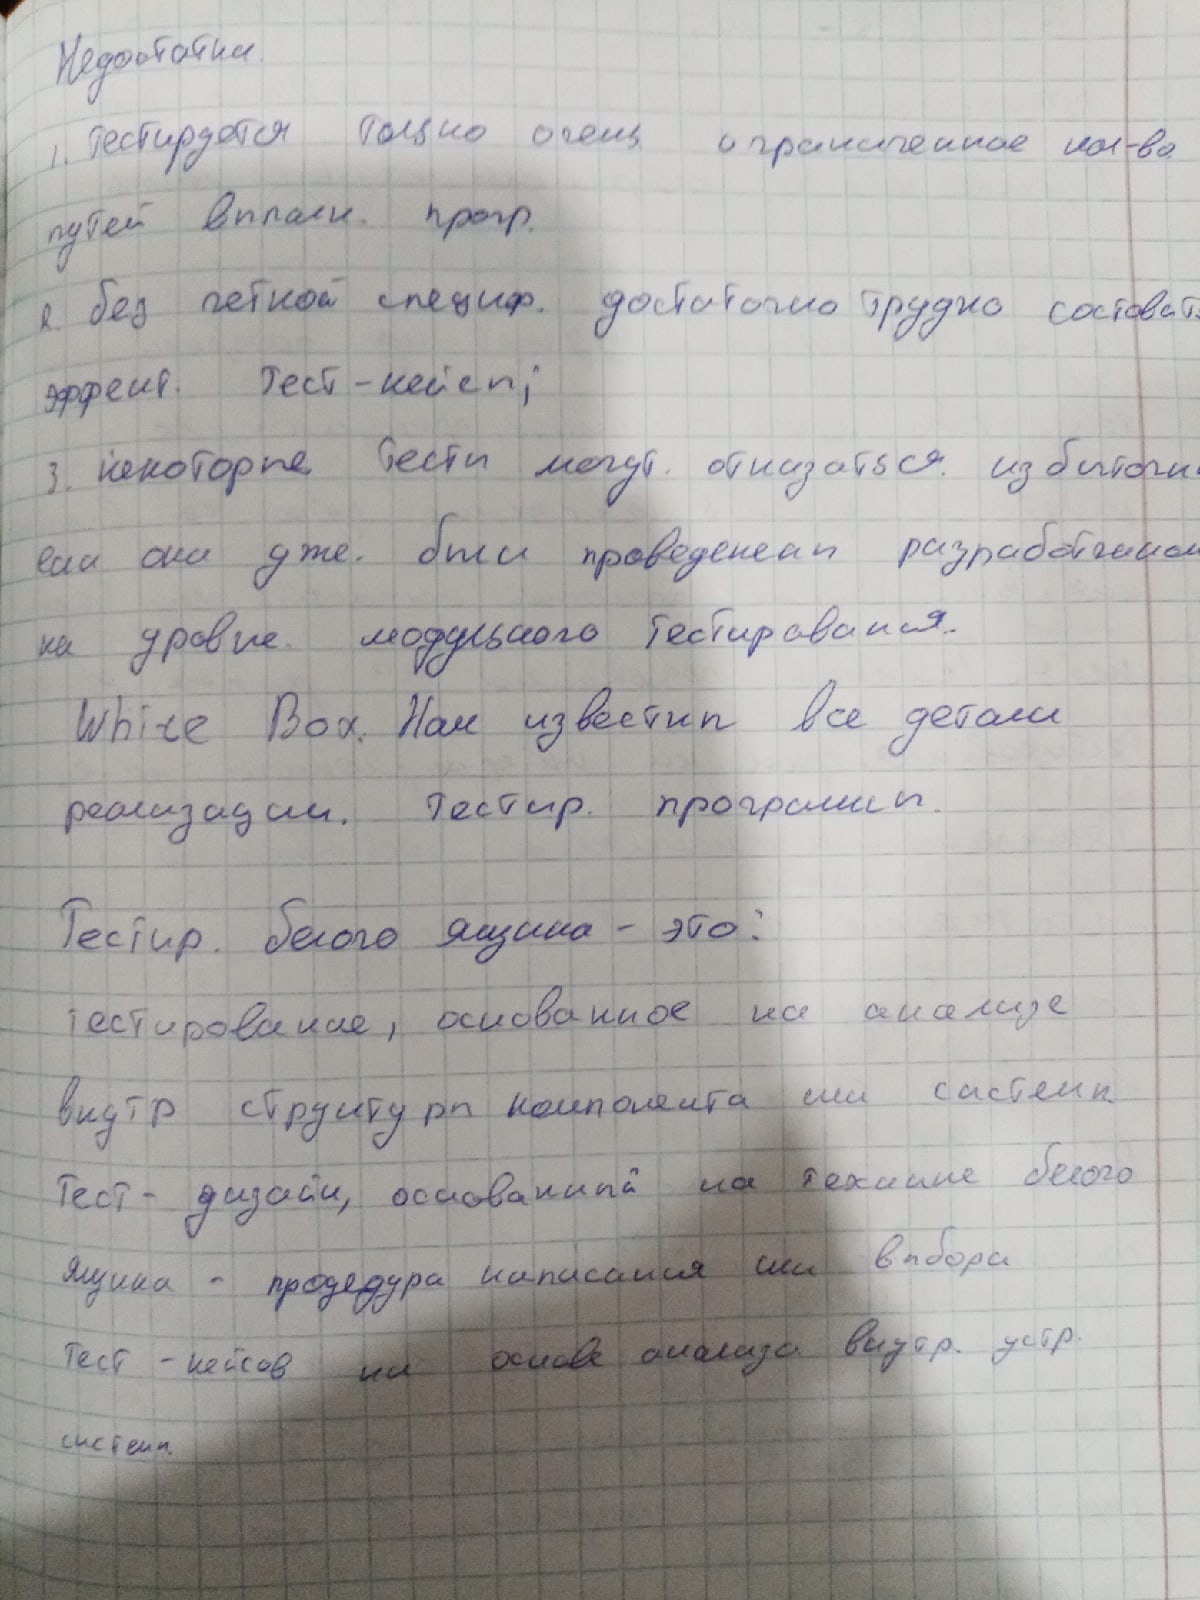 Недостатки.
1. Тестируется только очень ограниченное кол-во
путей выполн. прогр.
2. без четкой специф. достаточно трудно составить
эффект. тест-кейсы;
3. некоторые тесты могут. оказаться. избыточны
если они уже. были проведенены разработчиком
на уровне. модульного тестирования.
White Box. Нам известны все детали
реализации. тестир. программы.
Тестир. белого ящика - это:
тестирование, основанное на анализе
внутр структуры компонента или системы
Тест - дизайн, основанный на технике белого
ящика - процедура написания или выбора
тест - кейсов на основе анализа внутр. устр.
системы.